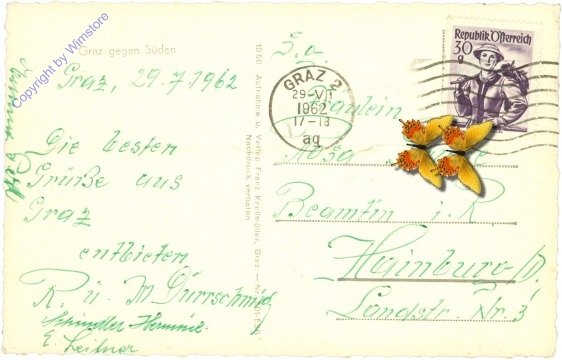 Copyright by Wimstore
Graz gegen Süden
Graz, 29.7.1962
Die besten
Grüße aus
Graz
entbieten
R. u. M Dürrschmid
Schindler Hermine
E. Leitner
1960 Aufnahme u. Verlag Franz Knollmüller, Graz
Nachdruck verboten
Republik Österreich
30
g
GRAZ 2
29-VII
1962
17-18
aq
S. g.
Fräulein
Rosa
Beamtin i. R.
Hainburg/D.
Landstr. Nr. 3